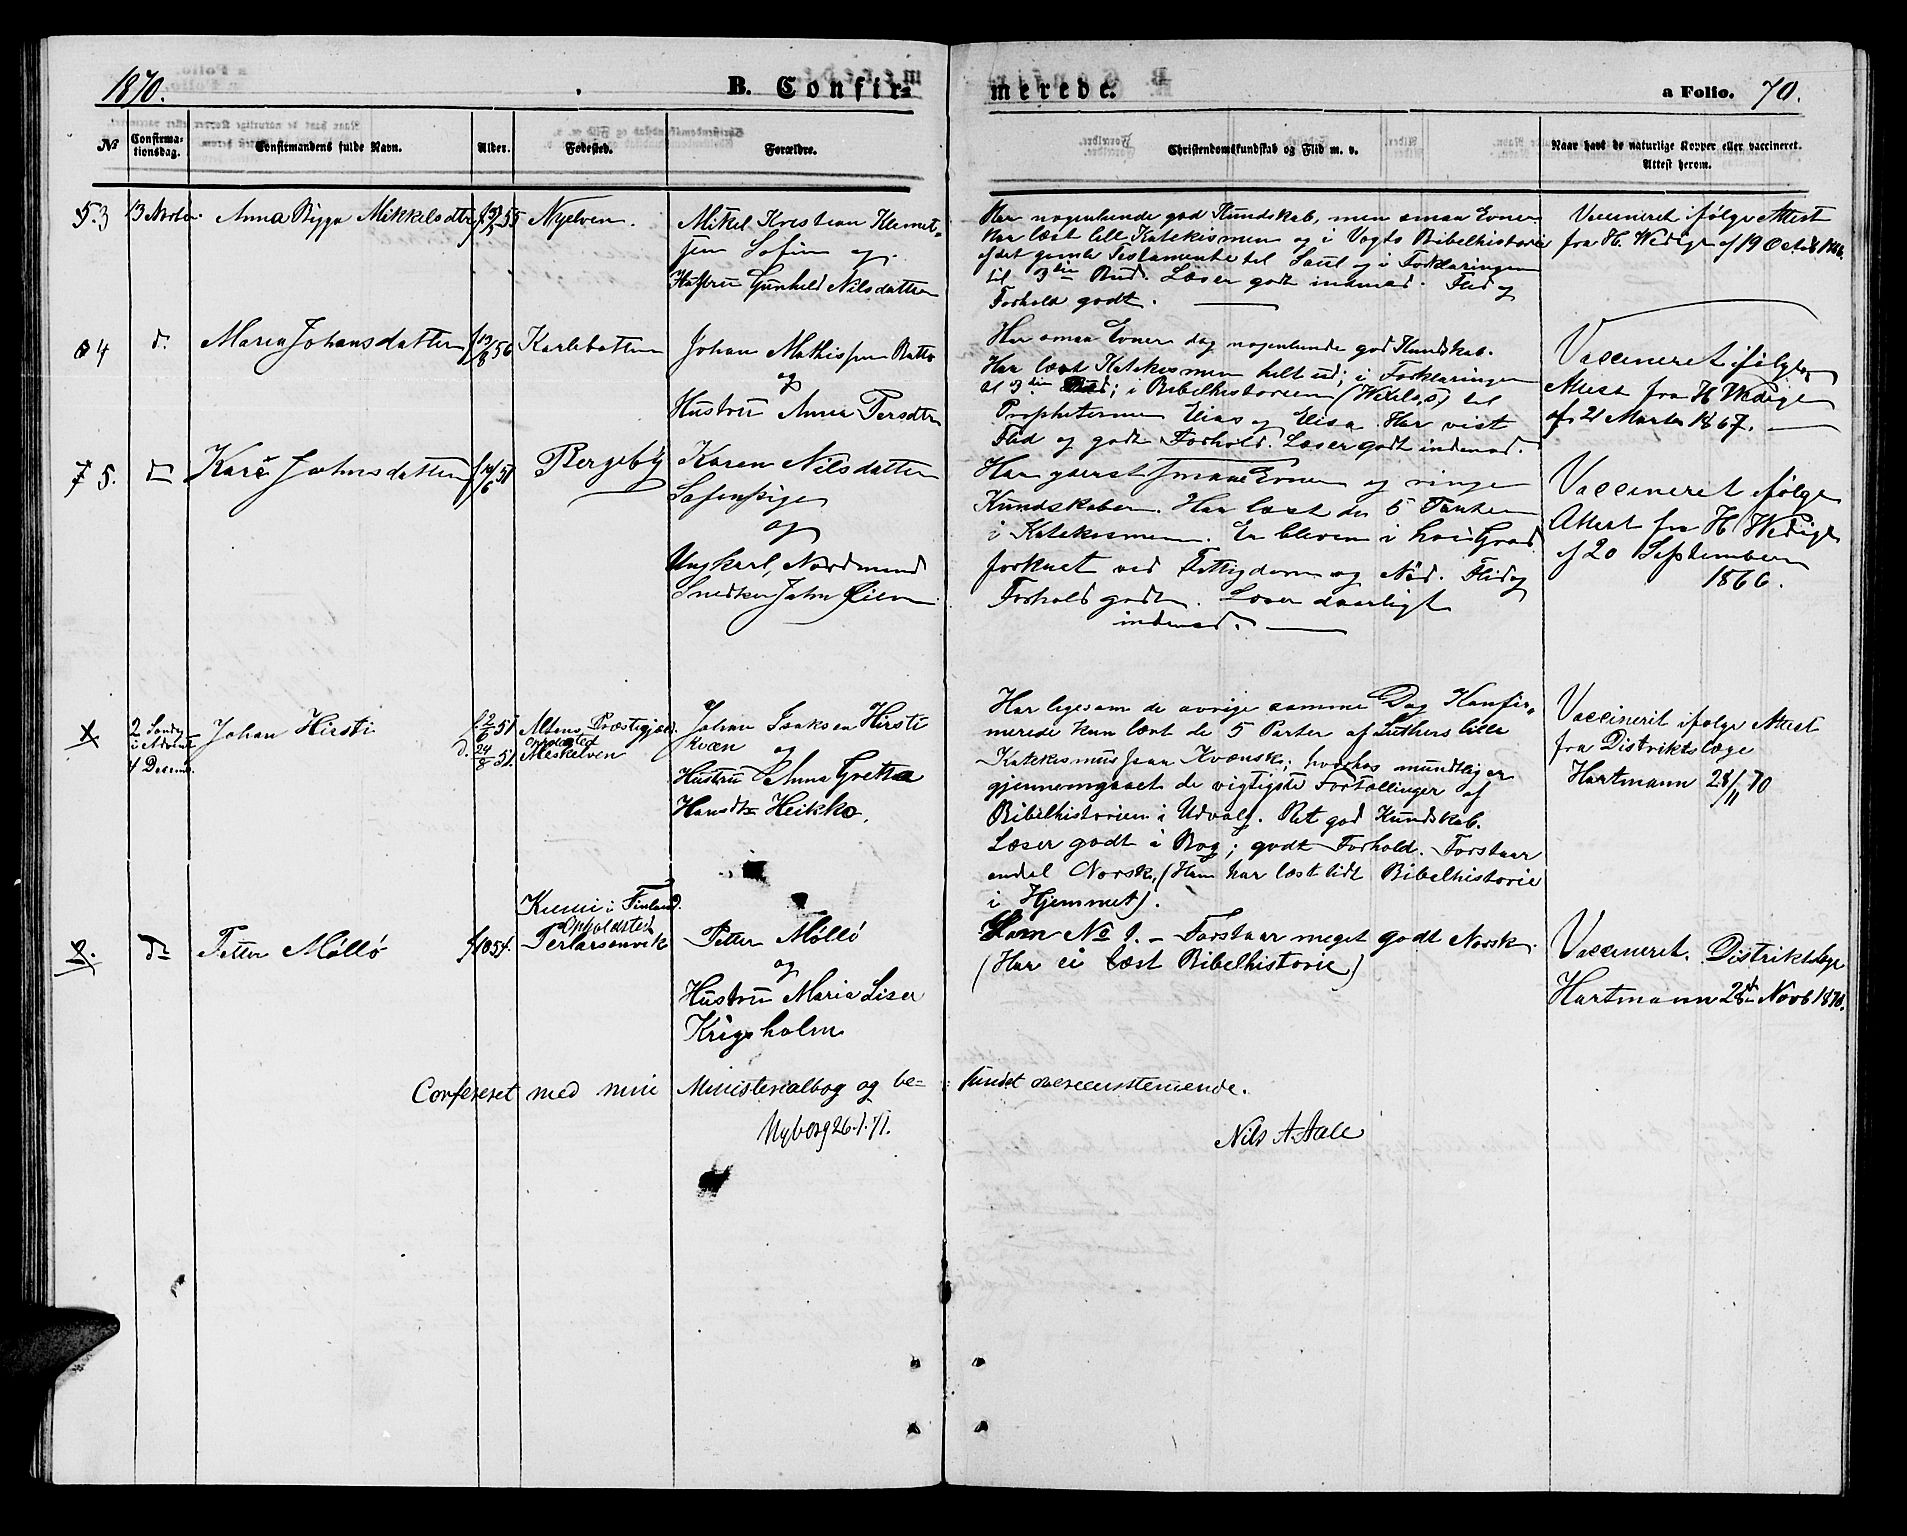 1870.
B. Confir-
merede.
a Folio. 70.
No
Confirma-
tionsdag.
Confirmandens fulde Navn.
Alder.
Fødested.
Forældre.
Christendomskundskab og Flid m. v.
Naar havt de naturlige Kopper eller vaccineret.
Attest herom.
3
13 Novbr.
Anna Bigga Mikkelsdtr
55
Nyelven.
Mikel Kristian Klemet-
sen Søfin og
Hustru Gunhild Nilsdatter
Har nogenlunde god Kundskab, men smaa Evner
Har læst lille Katekismen og i Vogts Bibelhistorie
af det gamle Testamente til Saul og i Forklaringen
til 3die Bud. Læser godt indenad. Flid og
Forhold godt.
Vaccineret ifølge Attest
fra H. Wedige af 19 Octob 1866.
4
d.
Maria Johansdatter
f 19/8 56
Karlebotten
Johan Mathissen Ratto
og
Hustru Anna Persdtr
Har smaa Evner dog nogenlunde god Kundskab.
Har læst Katekismen helt ud; i Forklaringen
til 3die Bud; i Bibelhistorien (Wexels,s) til
Propheterne Elias og Elisa. Har vist
Flid og godt Forhold. Læser godt indenad.
Vaccineret ifølge
Attest fra H Wedige
af 21 Marts 1867.
5.
d
Kari Johnsdatter
51
Bergeby
Karen Nilsdatter
Søfinpige
og
Ungkarl, Nordmand
Snedker John
Har yderst smaa Evner og ringe
Kundskaber. Har læst de 5 Parter
i Katekismen. Er bleven i høi Grad
forknet ved Fattigdom og Nød. Flid og
Forhold godt. Læser daarligt
indenad.
Vaccineret ifølge
Attest fra H Wedige
af 20 September
1866.
1
2 Søndag
i Advent
4 Decemb.
Johan Hirsti
f. 2/6 51
d. 24/8 51.
Altens Præstegjeld.
Opholdsted
Meskelven
Johan Isaksen Hirsti
Kvæn og
Hustru Anna Gretha
Hansdtr Heikka.
Har ligesom de øvrige samme Dag Konfir-
merede kun lært de 5 Parter af Luthers lille
Katekismus paa Kvænsk; hvorhos mundtlig er
gjennemgaaet de vigtigste Fortællinger af
Bibelhistorien i Udvalg. Ret god Kundskab.
Læser godt i Bog; godt Forhold. Forstaar
endel Norsk. (Han har læst lidt Bibelhistorie
i Hjemmet).
Vaccineret ifølge Attest
fra Distriktslæge
Hartmann 28/11 70
2.
do
Petter Møllö
54.
Kemi i Finland.
Opholdsted
Perlarsenvik
Petter Møllö
og
Hustru Maria Lisa
Krigsholm
Som No 1. - Forstaar meget godt Norsk.
(Har ei læst Bibelhistorie)
Vaccineret. Distriktslæge
Hartmann 28de Novb 1870.
Confereret med min Ministerialbog og be-
fundet overensstemmende.
Nyborg 26-1-71.
Nils A. Aall